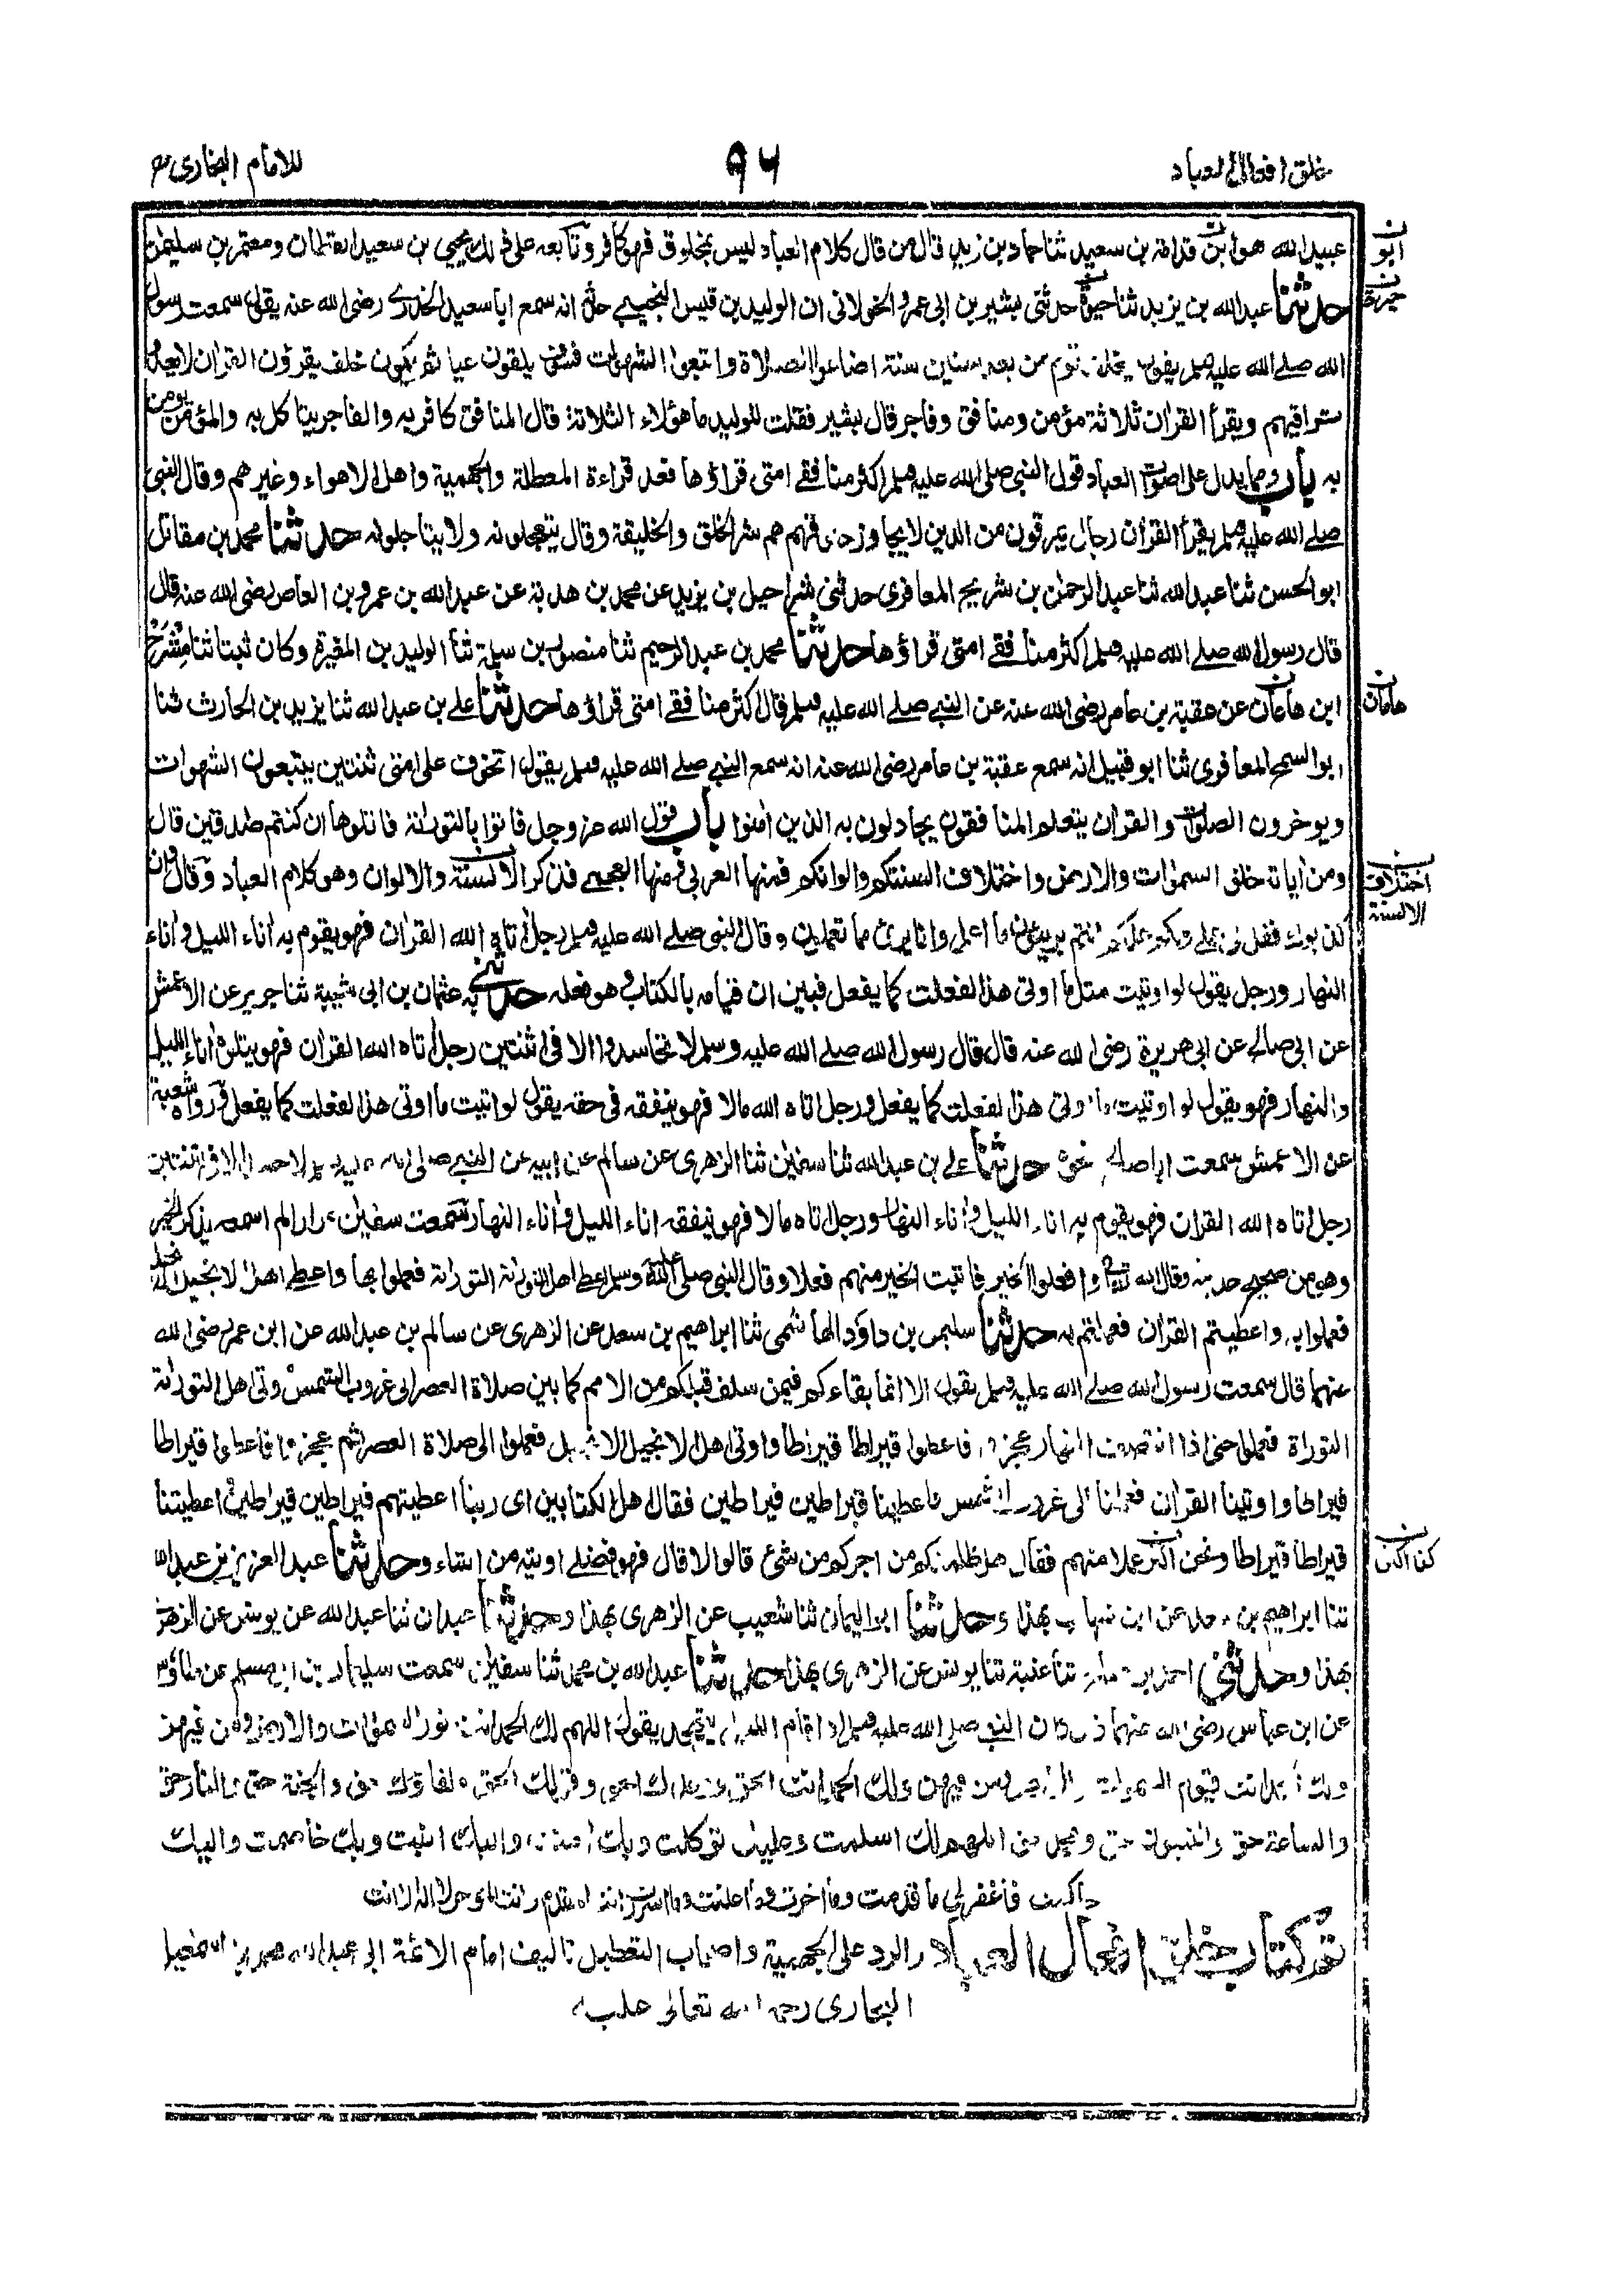 خلق افعال العباد
٩٦
للامام البخارى
عبيد الله هو ابن قدامة بن سعيد ثنا حماد بن زيد قال من قال كلام العباد ليس بمخلوق فهو كافر وتابعه على ذلك يحيى بن سعيد القطان ومعتمر بن سليمن
حدثنا عبد الله بن يزيد ثنا حيوة حدثنى بشير بن ابى عمرو الخولانى ان الوليد بن قيس التجيبى حدثه انه سمع ابا سعيد الخدرى رضى الله عنه يقول سمعت رسول
الله صلى الله عليه وسلم يقول يخلف قوم من بعد ستين سنة اضاعوا الصلاة واتبعوا الشهوات فسوف يلقون غيا ثم يكون خلف يقرؤن القران لا يعدو
تراقيهم ويقرأ القران ثلاثة مؤمن ومنافق وفاجر قال بشير فقلت للوليد ما هؤلاء الثلاثة قال المنافق كافر به والفاجر يتاكل به والمؤمن يومن
به باب وما يدل على اصوات العباد قول النبى صلى الله عليه وسلم اكثر منافقى امتى قراؤها فعد قراءة المعطلة والجهمية واهل الاهواء وغيرهم وقال النبى
صلى الله عليه وسلم يقرأ القران رجال يمرقون من الدين لا يجاوز حناجرهم هم شر الخلق والخليقة وقال يتعجلونه ولا يتاجلونه حدثنا محمد بن مقاتل
ابو الحسن ثنا عبد الله ثنا عبد الرحمن بن شريح المعافرى حدثنى شراحيل بن يزيد عن محمد بن هدية عن عبد الله بن عمرو بن العاص رضى الله عنه قال
قال رسول الله صلى الله عليه وسلم اكثر منافقى امتى قراؤها حدثنا محمد بن عبد الرحيم ثنا منصور بن سلمة ثنا الوليد بن المغيرة وكان ثبتا ثنا مشرح
ابن هاعان عن عقبة بن عامر رضى الله عنه عن النبى صلى الله عليه وسلم قال اكثر منافقى امتى قراؤها حدثنا على بن عبد الله ثنا يزيد بن الحارث ثنا
ابو السمح المعافرى ثنا ابو قبيل انه سمع عقبة بن عامر رضى الله عنه انه سمع النبى صلى الله عليه وسلم يقول اتخوف على امتى ثنتين يتبعون الشهوات
ويوخرون الصلوات والقران يتعلم المنافقون يجادلون به الذين امنوا باب قول الله عز وجل فاتوا بالتورٰىة فاتلوها ان كنتم صدقين قال
ومن اياته خلق السموات والارض واختلاف السنتكم والوانكم فمنها العربى ومنها العجمى فذكر الالسنة والالوان وهو كلام العباد وقال وان
كذبوك فقل لى عملى ولكم عملكم انتم بريئون مما اعمل وانا برئ مما تعملون وقال النبى صلى الله عليه وسلم رجل اتاه الله القران فهو يقوم به اناء الليل واناء
النهار ورجل يقول لو اوتيت مثل ما اوتى هذا لفعلت كما يفعل فبين ان قيامه بالكتاب هو فعله حدثنى به عثمان بن ابى شيبة ثنا جرير عن الاعمش
عن ابى صالح عن ابى هريرة رضى الله عنه قال قال رسول الله صلى الله عليه وسلم لا تحاسدوا الا فى اثنتين رجل اتاه الله القران فهو يتلوه اناء الليل
والنهار فهو يقول لو اوتيت ما اوتى هذا لفعلت كما يفعل ورجل اتاه الله مالا فهو ينفقه فى حقه يقول لو اتيت ما اوتى هذا لفعلت كما يفعل ورواه شعبة
عن الاعمش سمعت ابا صالح نحوه حدثنا على بن عبد الله ثنا سفين ثنا الزهرى عن سالم عن ابيه عن النبى صلى الله عليه وسلم لا حسد الا فى اثنتين
رجل اتاه الله القران فهو يقوم به اناء الليل واناء النهار ورجل اتاه مالا فهو ينفقه اناء الليل واناء النهار سمعت سفين مرارا لم اسمعه يذكر الخبر
وهو من صحيح حديثه وقال الله تعالى وافعلوا الخير فاثبت الخير منهم فعلا وقال النبى صلى الله عليه وسلم اعطى اهل التورٰىة التورٰىة فعملوا بها واعطى اهل الانجيل الانجيل
فعملوا به واعطيتم القران فعملتم به حدثنا سليمن بن داؤد الهاشمى ثنا ابراهيم بن سعد عن الزهرى عن سالم بن عبد الله عن ابن عمر رضى الله
عنهما قال سمعت رسول الله صلى الله عليه وسلم يقول الا انما بقاءكم فيمن سلف قبلكم من الامم كما بين صلاة العصر الى غروب الشمس وتى اهل التورٰىة
التوراة فعملوا حتى اذا انتصف النهار عجزوا فاعطوا قيراطا قيراطا واوتى اهل الانجيل الانجيل فعملوا الى صلاة العصر ثم عجزوا فاعطوا قيراطا
قيراطا واوتينا القران فعملنا الى غروب الشمس فاعطينا قيراطين قيراطين فقال اهل الكتابين اى ربنا اعطيتهم قيراطين قيراطين واعطيتنا
قيراطا قيراطا ونحن اكثر عملا منهم فقال هل ظلمتكم من اجركم من شئ قالوا لا قال فهو فضلى اوتيه من اشاء وحدثنا عبد العزيز بن عبد الله
ثنا ابراهيم بن سعد عن ابن شهاب بهذا وحدثنا ابو اليمان ثنا شعيب عن الزهرى بهذا وحدثنا عبدان ثنا عبد الله عن يونس عن الزهرى
بهذا وحدثنى احمد بن صالح ثنا عنبة ثنا يونس عن الزهرى بهذا حدثنا عبد الله بن محمد ثنا سفين سمعت سليمان بن ابى مسلم عن طاؤس
عن ابن عباس رضى الله عنهما كان النبى صلى الله عليه وسلم اذا قام الليل يتهجد يقول اللهم لك الحمد انت نور السموات والارض ومن فيهن
ولك الحمد انت قيوم السموات والارض ومن فيهن ولك الحمد انت الحق ووعدك الحق وقولك الحق ولقاؤك حق والجنة حق والنار حق
والساعة حق والنبيون حق ومحمد حق اللهم لك اسلمت وعليك توكلت وبك امنت واليك انبت وبك خاصمت واليك
حاكمت فاغفر لى ما قدمت وما اخرت وما اعلنت وما اسررت انت المقدم وانت المؤخر لا اله الا انت
تم كتاب خلق افعال العباد والرد على الجهمية واصحاب التعطيل تاليف امام الائمة ابى عبد الله محمد بن اسمعيل
البخارى رحمه الله تعالى عليه
ابو
حيوة
هامان
اختلاف
الالسنة